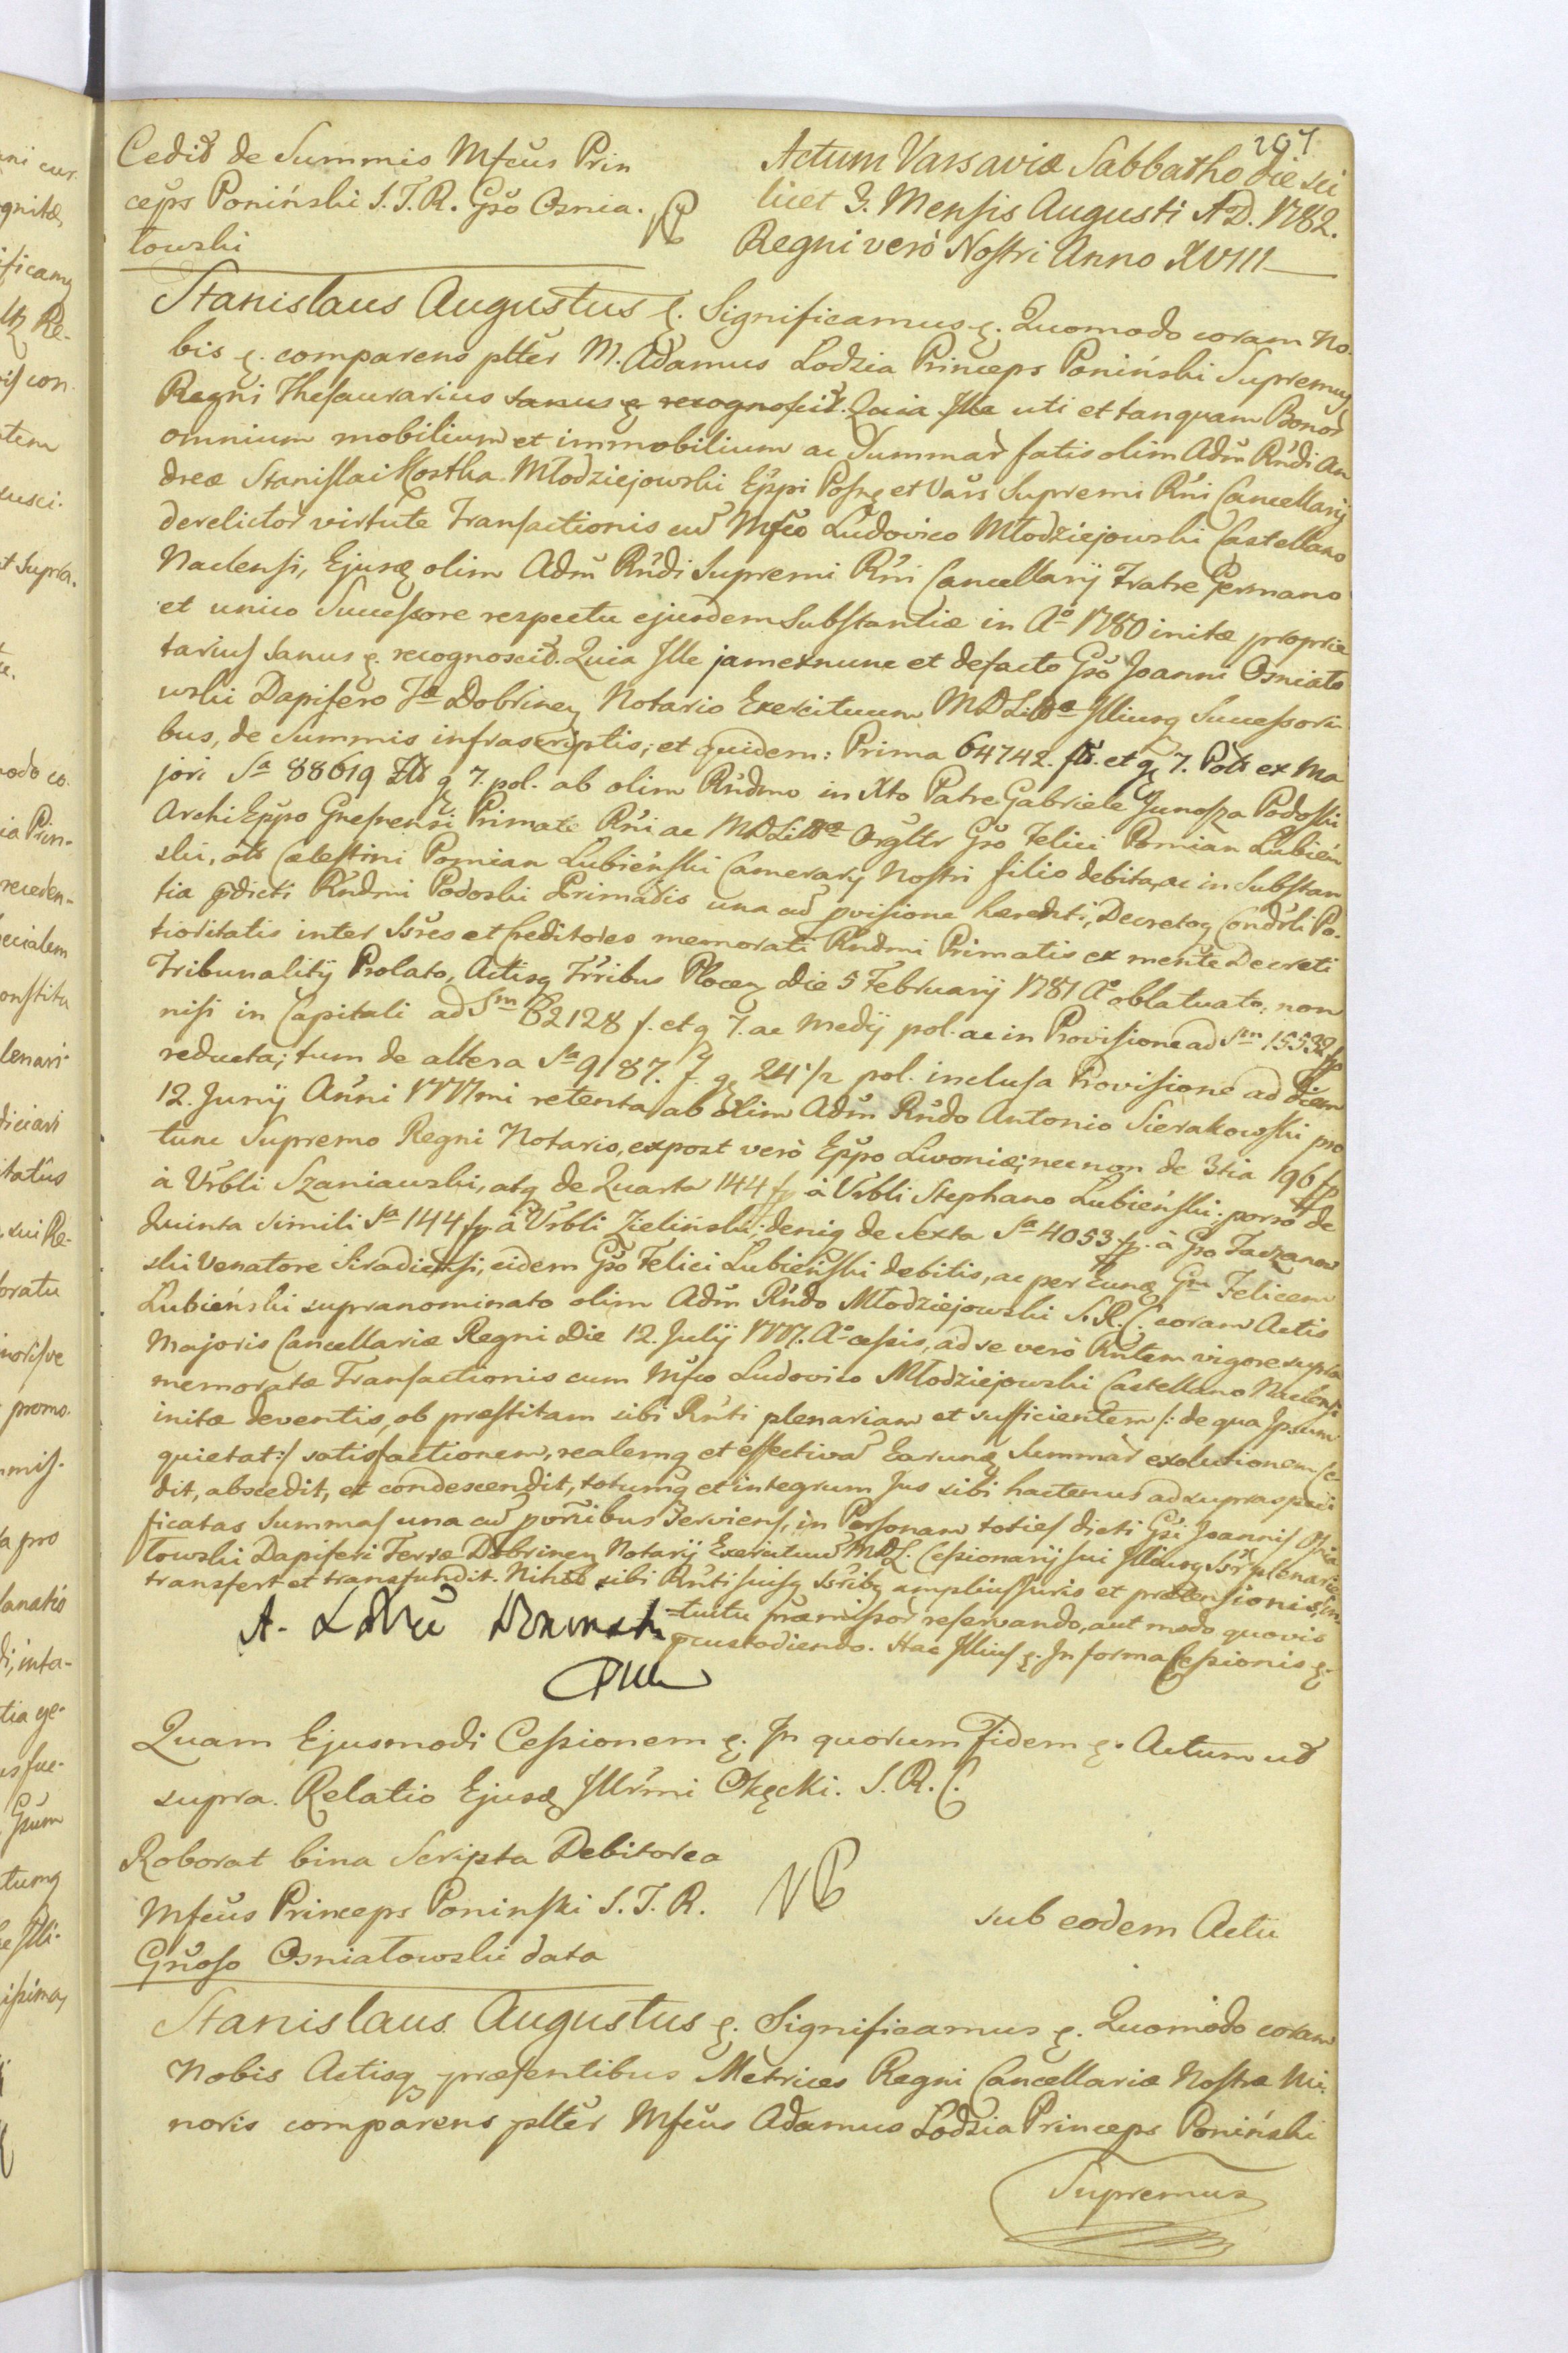 207
Cedit de Summis Mfcus Prin
ceps Poniński S.T.R. Gso Osnia.
towski
Actum Varsaviæ Sabbatho die sci
licet 3. Mensis Augusti A.D. 1782.
Regni verò Nostri Anno XVIII
Stanislaus Augustus &. Significamus &. Quomodo coram No-
bis &. comparens pltter M. Adamus Lodzia Princeps Poniński Supremus
Regni Thesaurarius sanus & recognoscit. Quia Ille uti et tanquam Bonor
omnium mobilium et immobilium ac Summar fatis olim Adm Rndi An
dreæ Stanislai Kostka Młodziejowski Eppi Posn et Vars Supremi Rni Cancellarij
derelictor virtute Transactionis cu Mfco Ludovico Młodziejowski Castellano
Naclensi, Ejusq olim Adm Rndi Supremi Rni Cancellarij Fratre Germano
et unico Successore respectu ejusdem Substantiæ in Ao 1780 initæ proprie
tarius sanus &. recognoscit. Quia Ille jam ex nunc et defacto Gso Joanni Osniato
wski Dapifero Tæ Dobrinen Notario Exercituum MDLittæ Illiusq Successori
bus, de Summis infrascriptis, et quidem: Prima 64742. fl. et g 7. Pol ex Ma
jori Sa 88619 Fl g 7. pol. ab olim Rndmo in Xto Patre Gabriele Junosza Podoski
Archi Eppo Gnesnensi Primate Rni ac MDLittæ Gso Felici Pomian Lubień
ski, olt Cælestini Pomian Lubieński Camerarij Nostri filio debita, ac in Substan
tia pdicti Rndmi Podoski Primatis una cu pvisione hærenti, Decretoq Condrli Po-
tioritatis inter Ssres et Creditores memorati Rndmi Primatis ex mente Decreti
Tribunalitij Prolato, Actisq Trribus Plocen die 5 Februarij 1781 Ao oblatuato, non
nisi in Capitali ad Sm 62128 f. et g 7. ac medij pol. ac in Provisione ad Sm 15532 fp
reducta; tum de altera Sa 9187. f. g 24 1/2 pol. inclusa Provisione ad diem
12. Junij Anni 1777mi retenta, ab olim Adm Rndo Antonio Sierakowski pro
tunc Supremo Regni Notario, expost verò Eppo Livoniæ; nec non de 3tia 196 fp
à Vrbli Szaniawski, atq de Quarta 144 fp à Vrbli Stephano Lubieński: porrò de
Quinta simili Sa 144 fp à Vrbli Zieliński; deniq de Sexta Sa 4053 fp. à Gso Taczanow
ski Venatore Siradiensi, eidem Gso Felici Lubieński debitis, ac per Eunq Gm Felicem
Lubieński supranominato olim Adm Rndo Młodziejowski S.R.C. coram Actis
Majoris Cancellariæ Regni die 12. Julij 1777. Ao cessis, ad se verò Rntem vigore supra
memoratæ Transactionis cum Mfco Ludovico Młodziejowski Castellano Naclensi
initæ deventis, ob præstitam sibi Rnti plenariam et sufficientem /: de qua Ipsum
quietat:/ satisfactionem, realemq et effectiva Earunq Summar exolutionem ce-
dit, abscedit, et condescendit, totumq et integrum Jus sibi hactenus ad supraspeci
ficatas Summas una cu pvnibus serviens, in Personam toties dicti Gsi Joannis Osnia
towski Dapiferi Terræ Dobrinen Notarij Exercituu MDL. Cessionarij sui Illiusq Ssr plenarie
transfert et transfundit. Nihil sibi Rnti suisq Ssribq amplius Juris et prætensionis, in
=tuitu præmissor reservando, aut modo quovis
pcustodiendo. Hac Illius &. In forma Cessionis &.
A. Łodzia Poninski
Quam Ejusmodi Cessionem &. In quorum Fidem &. Actum ut
supra. Relatio Ejusq Illrmi Okęcki. S.R.C.
Roborat bina Scripta Debitorea
Mfcus Princeps Poninski S.T.R.
Gnoso Osniatowski data
sub eodem Actu
Stanislaus Augustus &. Significamus &. Quomodo coram
Nobis Actisq præsentibus Metrices Regni Cancellariæ Nostræ Mi-
noris comparens pltter Mfcus Adamus Lodzia Princeps Poniński
Supremus